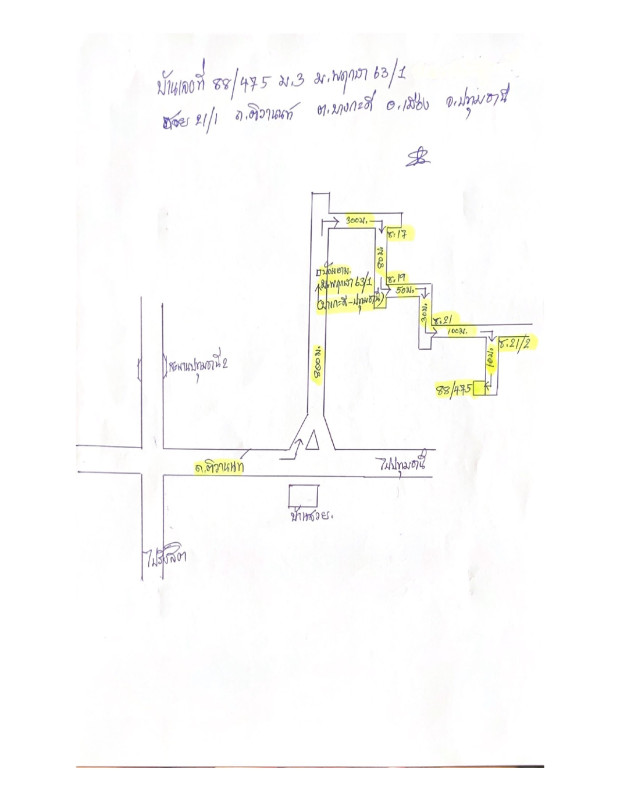 บ้านเลขที่ 88/475 ม.3 ม.พฤกษา 63/1
ซอย 21/1 ถ.ติวานนท์ ต.บางกะดี อ.เมือง จ.ปทุมธานี
300ม.
ซ.17
80ม.
หมู่บ้าน
พฤกษา 63/1
(บางกะดี-ปทุมธานี)
ซ.19
50ม.
30ม.
ซ.21
100ม.
ซ.21/2
88/475
800ม.
สะพานปทุมธานี2
ถ.ติวานนท์
ไปปทุมธานี
บ้านสวย.
ไปรังสิต